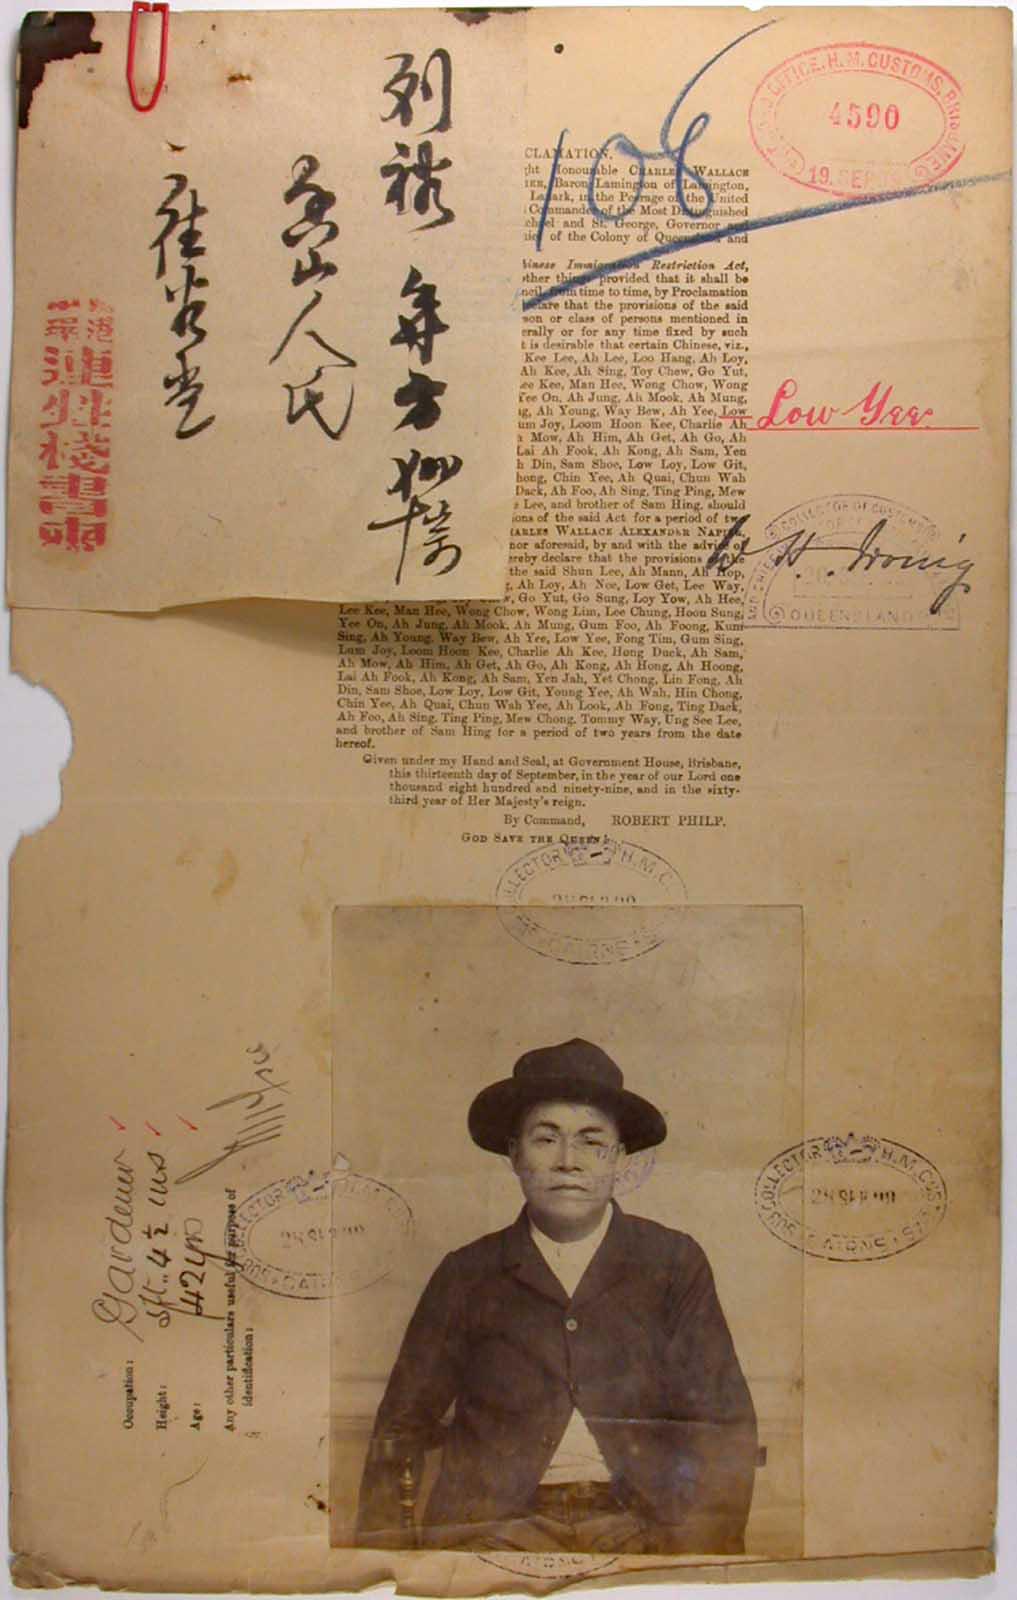 香山人氏
4590
19. SEP.
108
CLAMATION.
ght Honourable CHARLES WALLACE
IER, Baron Lamington of Lamington,
Lanark, in the Peerage of the United
Commander of the Most Distinguished
chael and St. George, Governor and
of the Colony of Queensland and
hinese Immigration Restriction Act,
other things provided that it shall be
ncil, from time to time, by Proclamation
declare that the provisions of the said
son or class of persons mentioned in
erally or for any time fixed by such
t is desirable that certain Chinese, viz.,
Kee Lee, Ah Lee, Loo Hang, Ah Loy,
Ah Kee, Ah Sing, Toy Chew, Go Yut,
ee Kee, Man Hee, Wong Chow, Wong
Yee On, Ah Jung, Ah Mook, Ah Mung,
ig, Ah Young, Way Bew, Ah Yee, Low
Low Yee.
um Joy, Loom Hoon Kee, Charlie Ah
Mow, Ah Him, Ah Get, Ah Go, Ah
Lai Ah Fook, Ah Kong, Ah Sam, Yen
h Din, Sam Shoe, Low Loy, Low Git,
hong, Chin Yee, Ah Quai, Chun Wah
Dack, Ah Foo, Ah Sing, Ting Ping, Mew
Lee, and brother of Sam Hing, should
ions of the said Act for a period of two
CHARLES WALLACE ALEXANDER NAPIER,
nor aforesaid, by and with the advice of
ereby declare that the provisions of the
the said Shun Lee, Ah Mann, Ah Hop,
g, Ah Loy, Ah Nee, Low Get, Lee Way,
Go Yut, Go Sung, Loy Yow, Ah Hee,
Lee Kee, Man Hee, Wong Chow, Wong Lim, Lee Chung, Hoon Sung,
Yee On, Ah Jung, Ah Mook, Ah Mung, Gum Foo, Ah Foong, Kum
Sing, Ah Young, Way Bew, Ah Yee, Low Yee, Fong Tim, Gum Sing,
Lum Joy, Loom Hoon Kee, Charlie Ah Kee, Hong Duck, Ah Sam,
Ah Mow, Ah Him, Ah Get, Ah Go, Ah Kong, Ah Hong, Ah Hoong,
Lai Ah Fook, Ah Kong, Ah Sam, Yen Jah, Yet Chong, Lin Fong, Ah
Din, Sam Shoe, Low Loy, Low Git, Young Yee, Ah Wah, Hin Chong,
Chin Yee, Ah Quai, Chun Wah Yee, Ah Look, Ah Fong, Ting Dack,
Ah Foo, Ah Sing, Ting Ping, Mew Chong, Tommy Way, Ung See Lee,
and brother of Sam Hing for a period of two years from the date
hereof.
Given under my Hand and Seal, at Government House, Brisbane,
this thirteenth day of September, in the year of our Lord one
thousand eight hundred and ninety-nine, and in the sixty-
third year of Her Majesty's reign.
By Command, ROBERT PHILP.
GOD SAVE THE QUEEN!
COLLECTOR OF CUSTOMS
QUEENSLAND
COLLECTOR H.M.
CAIRNS
Occupation: Gardener
Height: 5ft.. 4½ ins
Age: 42 yrs
Any other particulars useful for purposes of
identification:
COLLECTOR H.M. CUS
CAIRNS